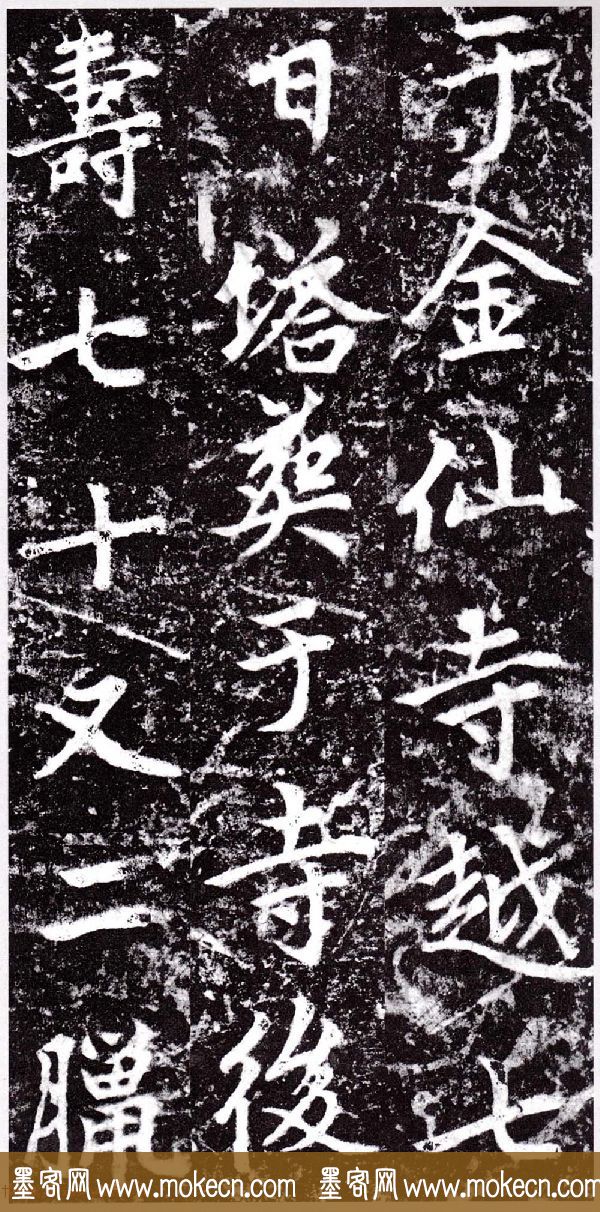 于金仙寺越七
日塔葬于寺後
壽七十又二臘
墨客网 www.mokecn.com 墨客网 www.mokecn.com